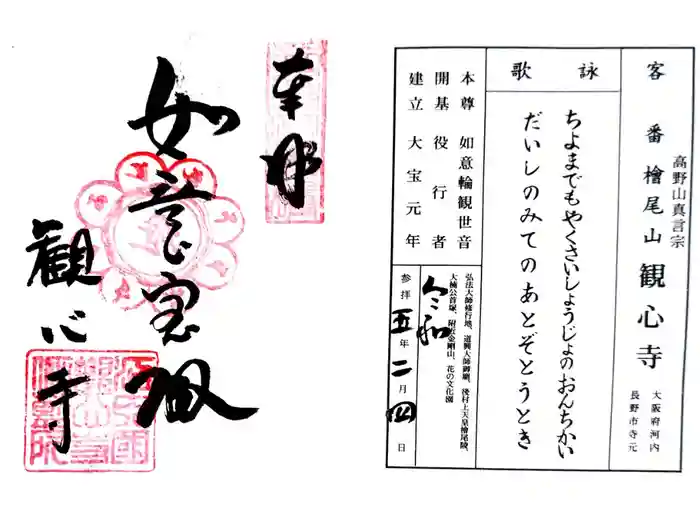 奉拝
如意宝殿
観心寺
客番 檜尾山 観心寺
高野山真言宗
大阪府河内
長野市寺元
詠歌
ちよまでもやくさいしょうじょのおんちかい
だいしのみてのあとぞとうとき
本尊 如意輪観世音
開基 役行者
建立 大宝元年
弘法大師修行地、道興大師御廟、後村上天皇檜尾陵、
大楠公首塚、附近金剛山、花の文化園
令和
参拝 五年二月四日